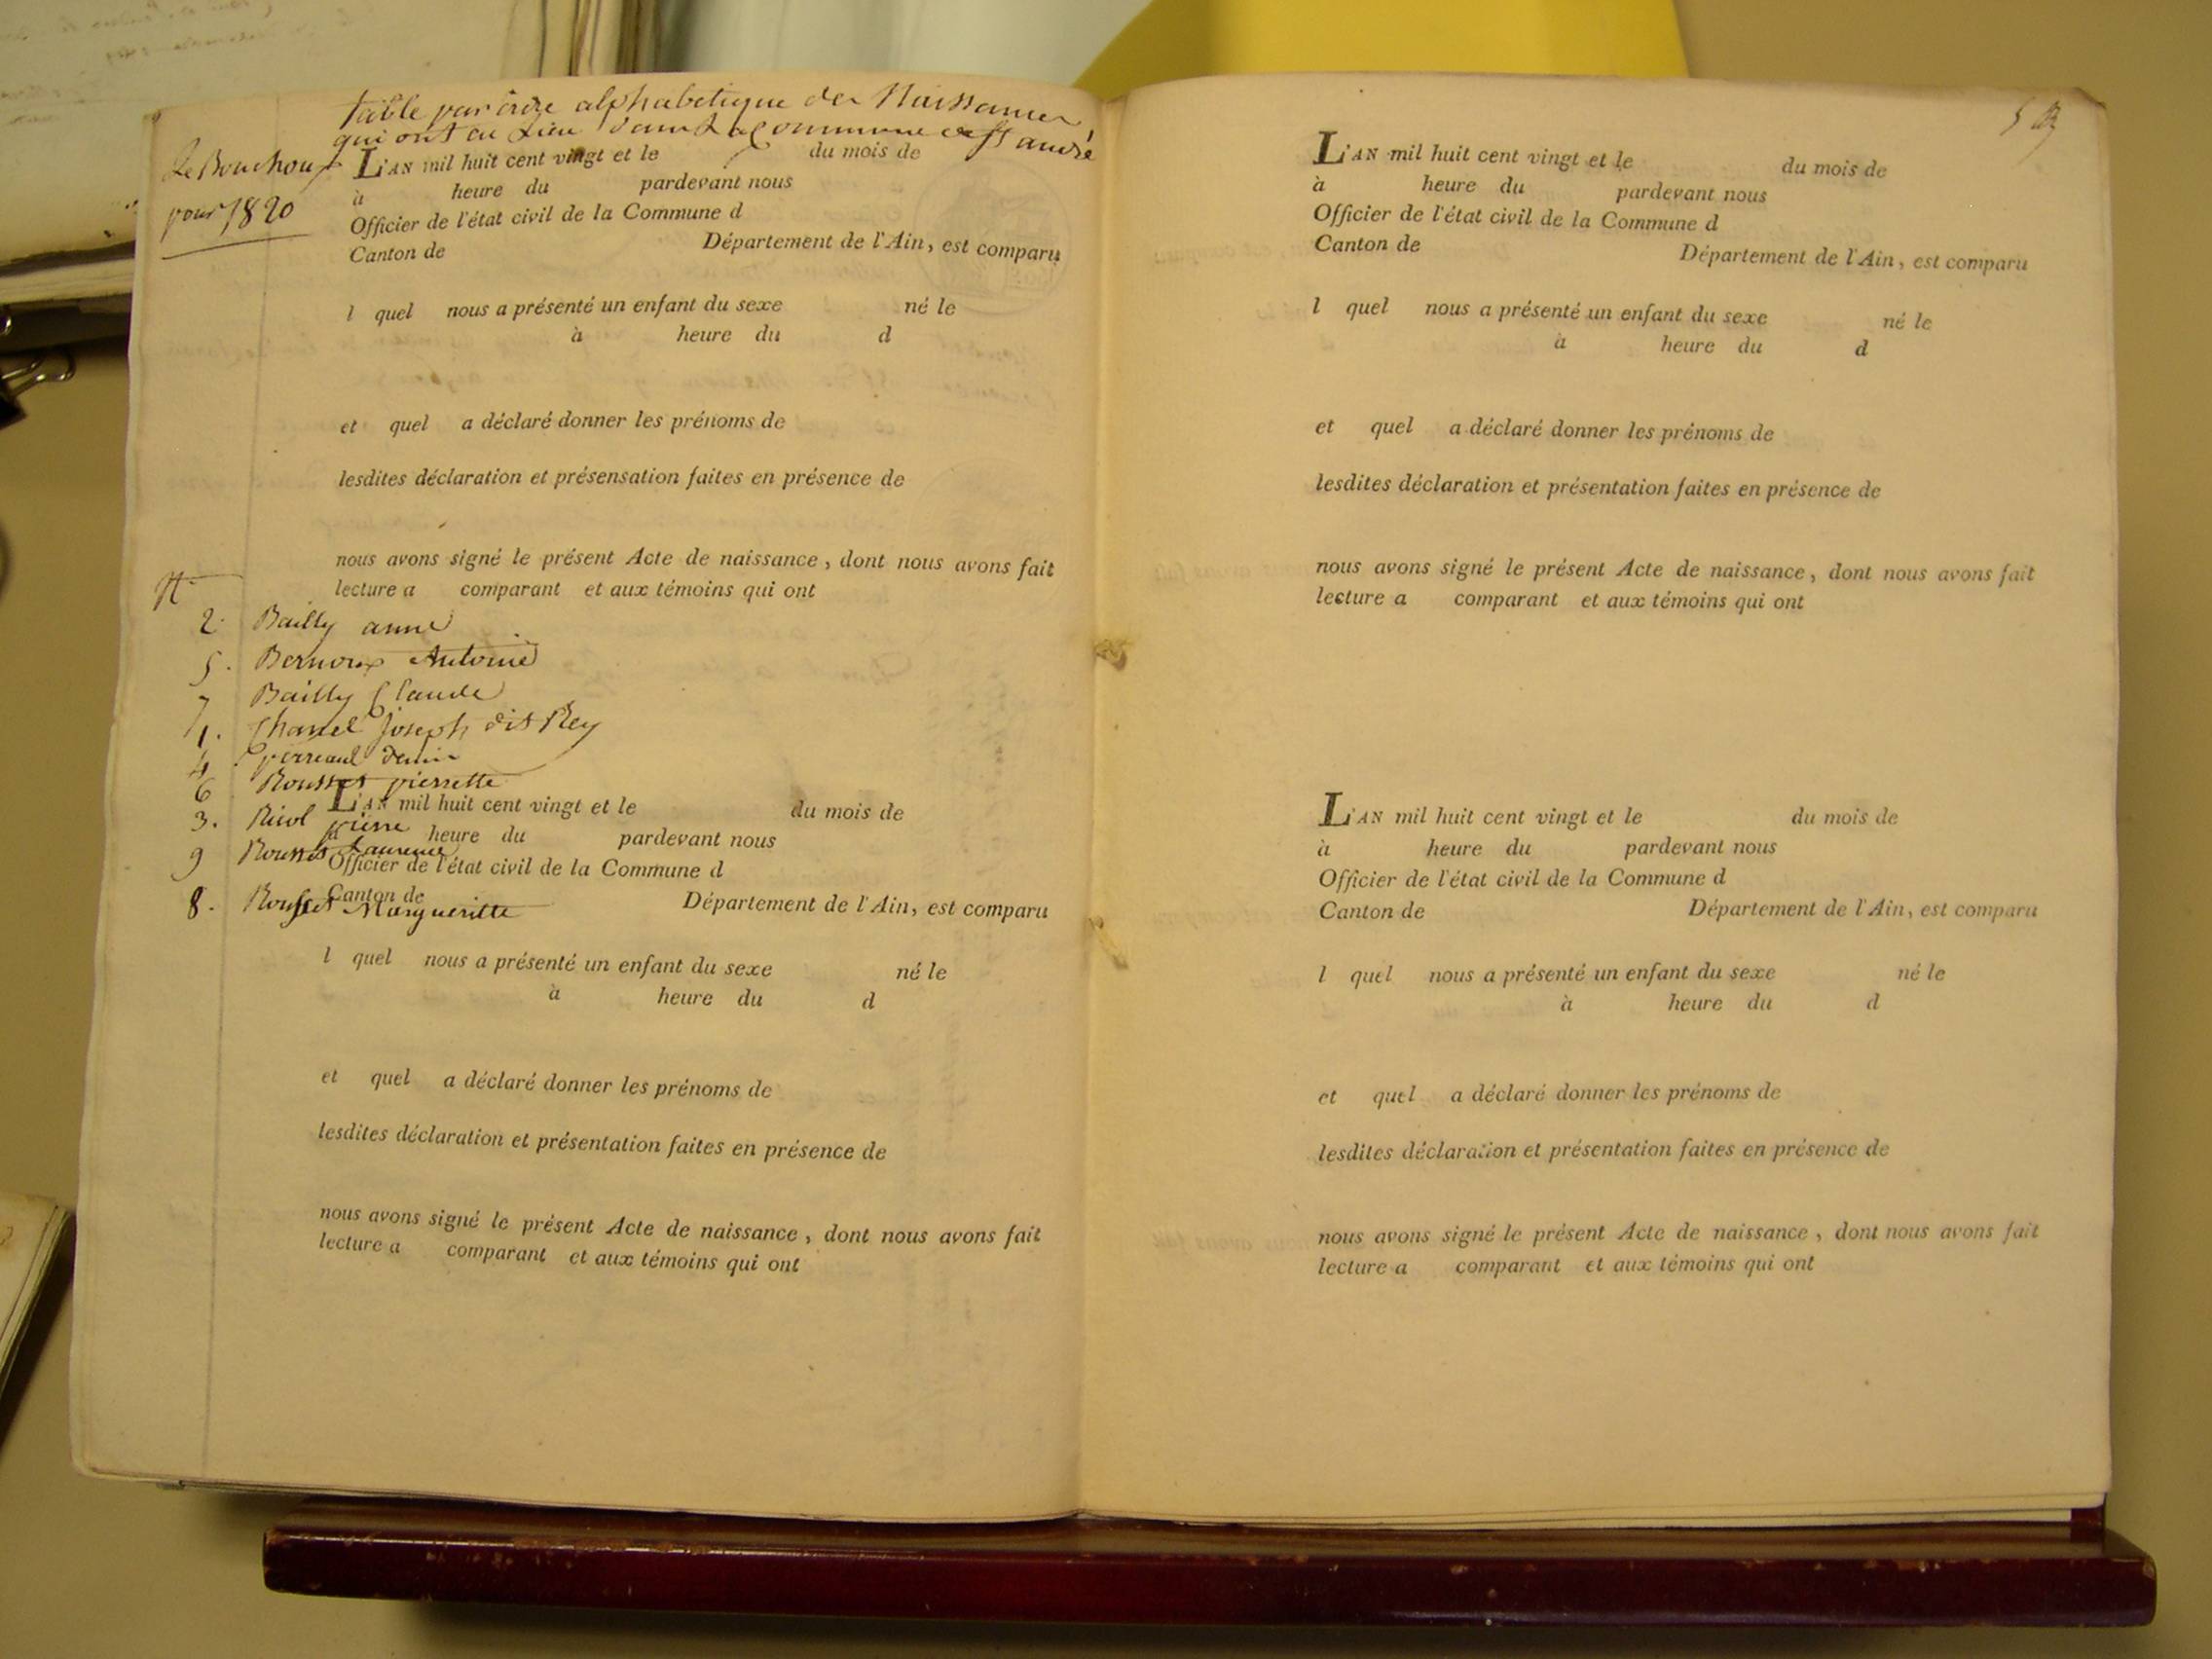 Table par ordre alphabetique des Naissances
qui ont eu Lieu dans La Commune de St andré
Le Bouchoux
pour 1820
L'AN mil huit cent vingt et le du mois de
à heure du pardevant nous
Officier de l'état civil de la Commune d
Canton de Département de l'Ain, est comparu
l quel nous a présenté un enfant du sexe né le
à heure du d
et quel a déclaré donner les prénoms de
lesdites déclaration et présensation faites en présence de
nous avons signé le présent Acte de naissance, dont nous avons fait
lecture a comparant et aux témoins qui ont
N
2. Bailly anne
5. Bernoux Antoine
7 Bailly Claude
1. Chanel Joseph dit Rey
4 perreaud
6 Rousset pierrette
3. Ricol pierre
9 Rousset Laurence
8. Rousset Margueritte
L'AN mil huit cent vingt et le du mois de
à heure du pardevant nous
Officier de l'état civil de la Commune d
Canton de Département de l'Ain, est comparu
l quel nous a présenté un enfant du sexe né le
à heure du d
et quel a déclaré donner les prénoms de
lesdites déclaration et présentation faites en présence de
nous avons signé le présent Acte de naissance, dont nous avons fait
lecture a comparant et aux témoins qui ont
5
L'AN mil huit cent vingt et le du mois de
à heure du pardevant nous
Officier de l'état civil de la Commune d
Canton de Département de l'Ain, est comparu
l quel nous a présenté un enfant du sexe né le
à heure du d
et quel a déclaré donner les prénoms de
lesdites déclaration et présentation faites en présence de
nous avons signé le présent Acte de naissance, dont nous avons fait
lecture a comparant et aux témoins qui ont
L'AN mil huit cent vingt et le du mois de
à heure du pardevant nous
Officier de l'état civil de la Commune d
Canton de Département de l'Ain, est comparu
l quel nous a présenté un enfant du sexe né le
à heure du d
et quel a déclaré donner les prénoms de
lesdites déclaration et présentation faites en présence de
nous avons signé le présent Acte de naissance, dont nous avons fait
lecture a comparant et aux témoins qui ont